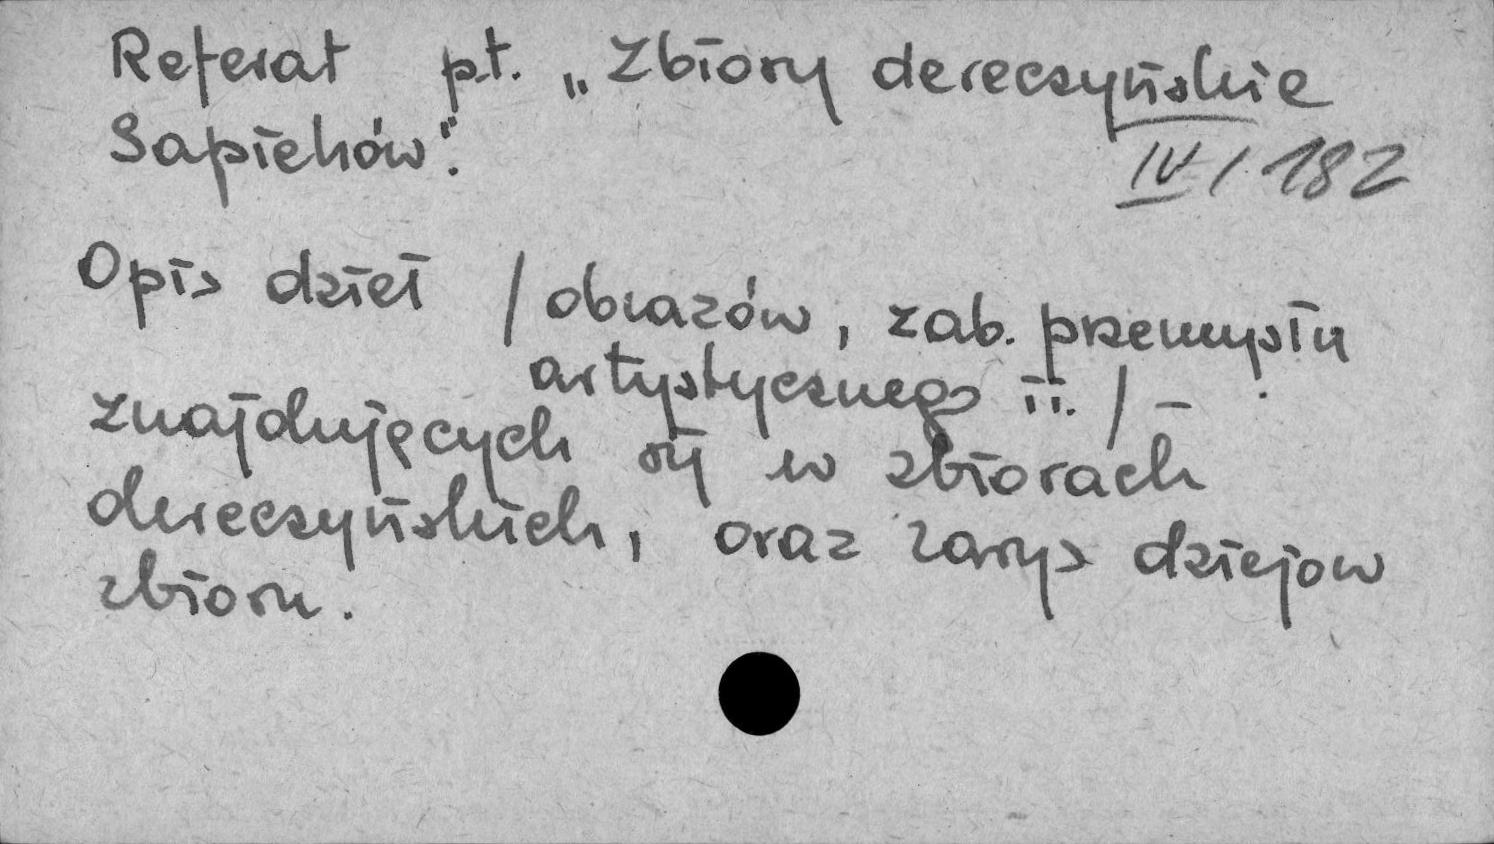 Referat pt. „Zbiory dereczyńskie
Sapiehów".
IV/182
Opis dzieł / obrazów, zab. przemysłu
artystycznego i i. / –
znajdujących się w zbiorach
dereczyńskich, oraz zarys dziejow
zbioru.